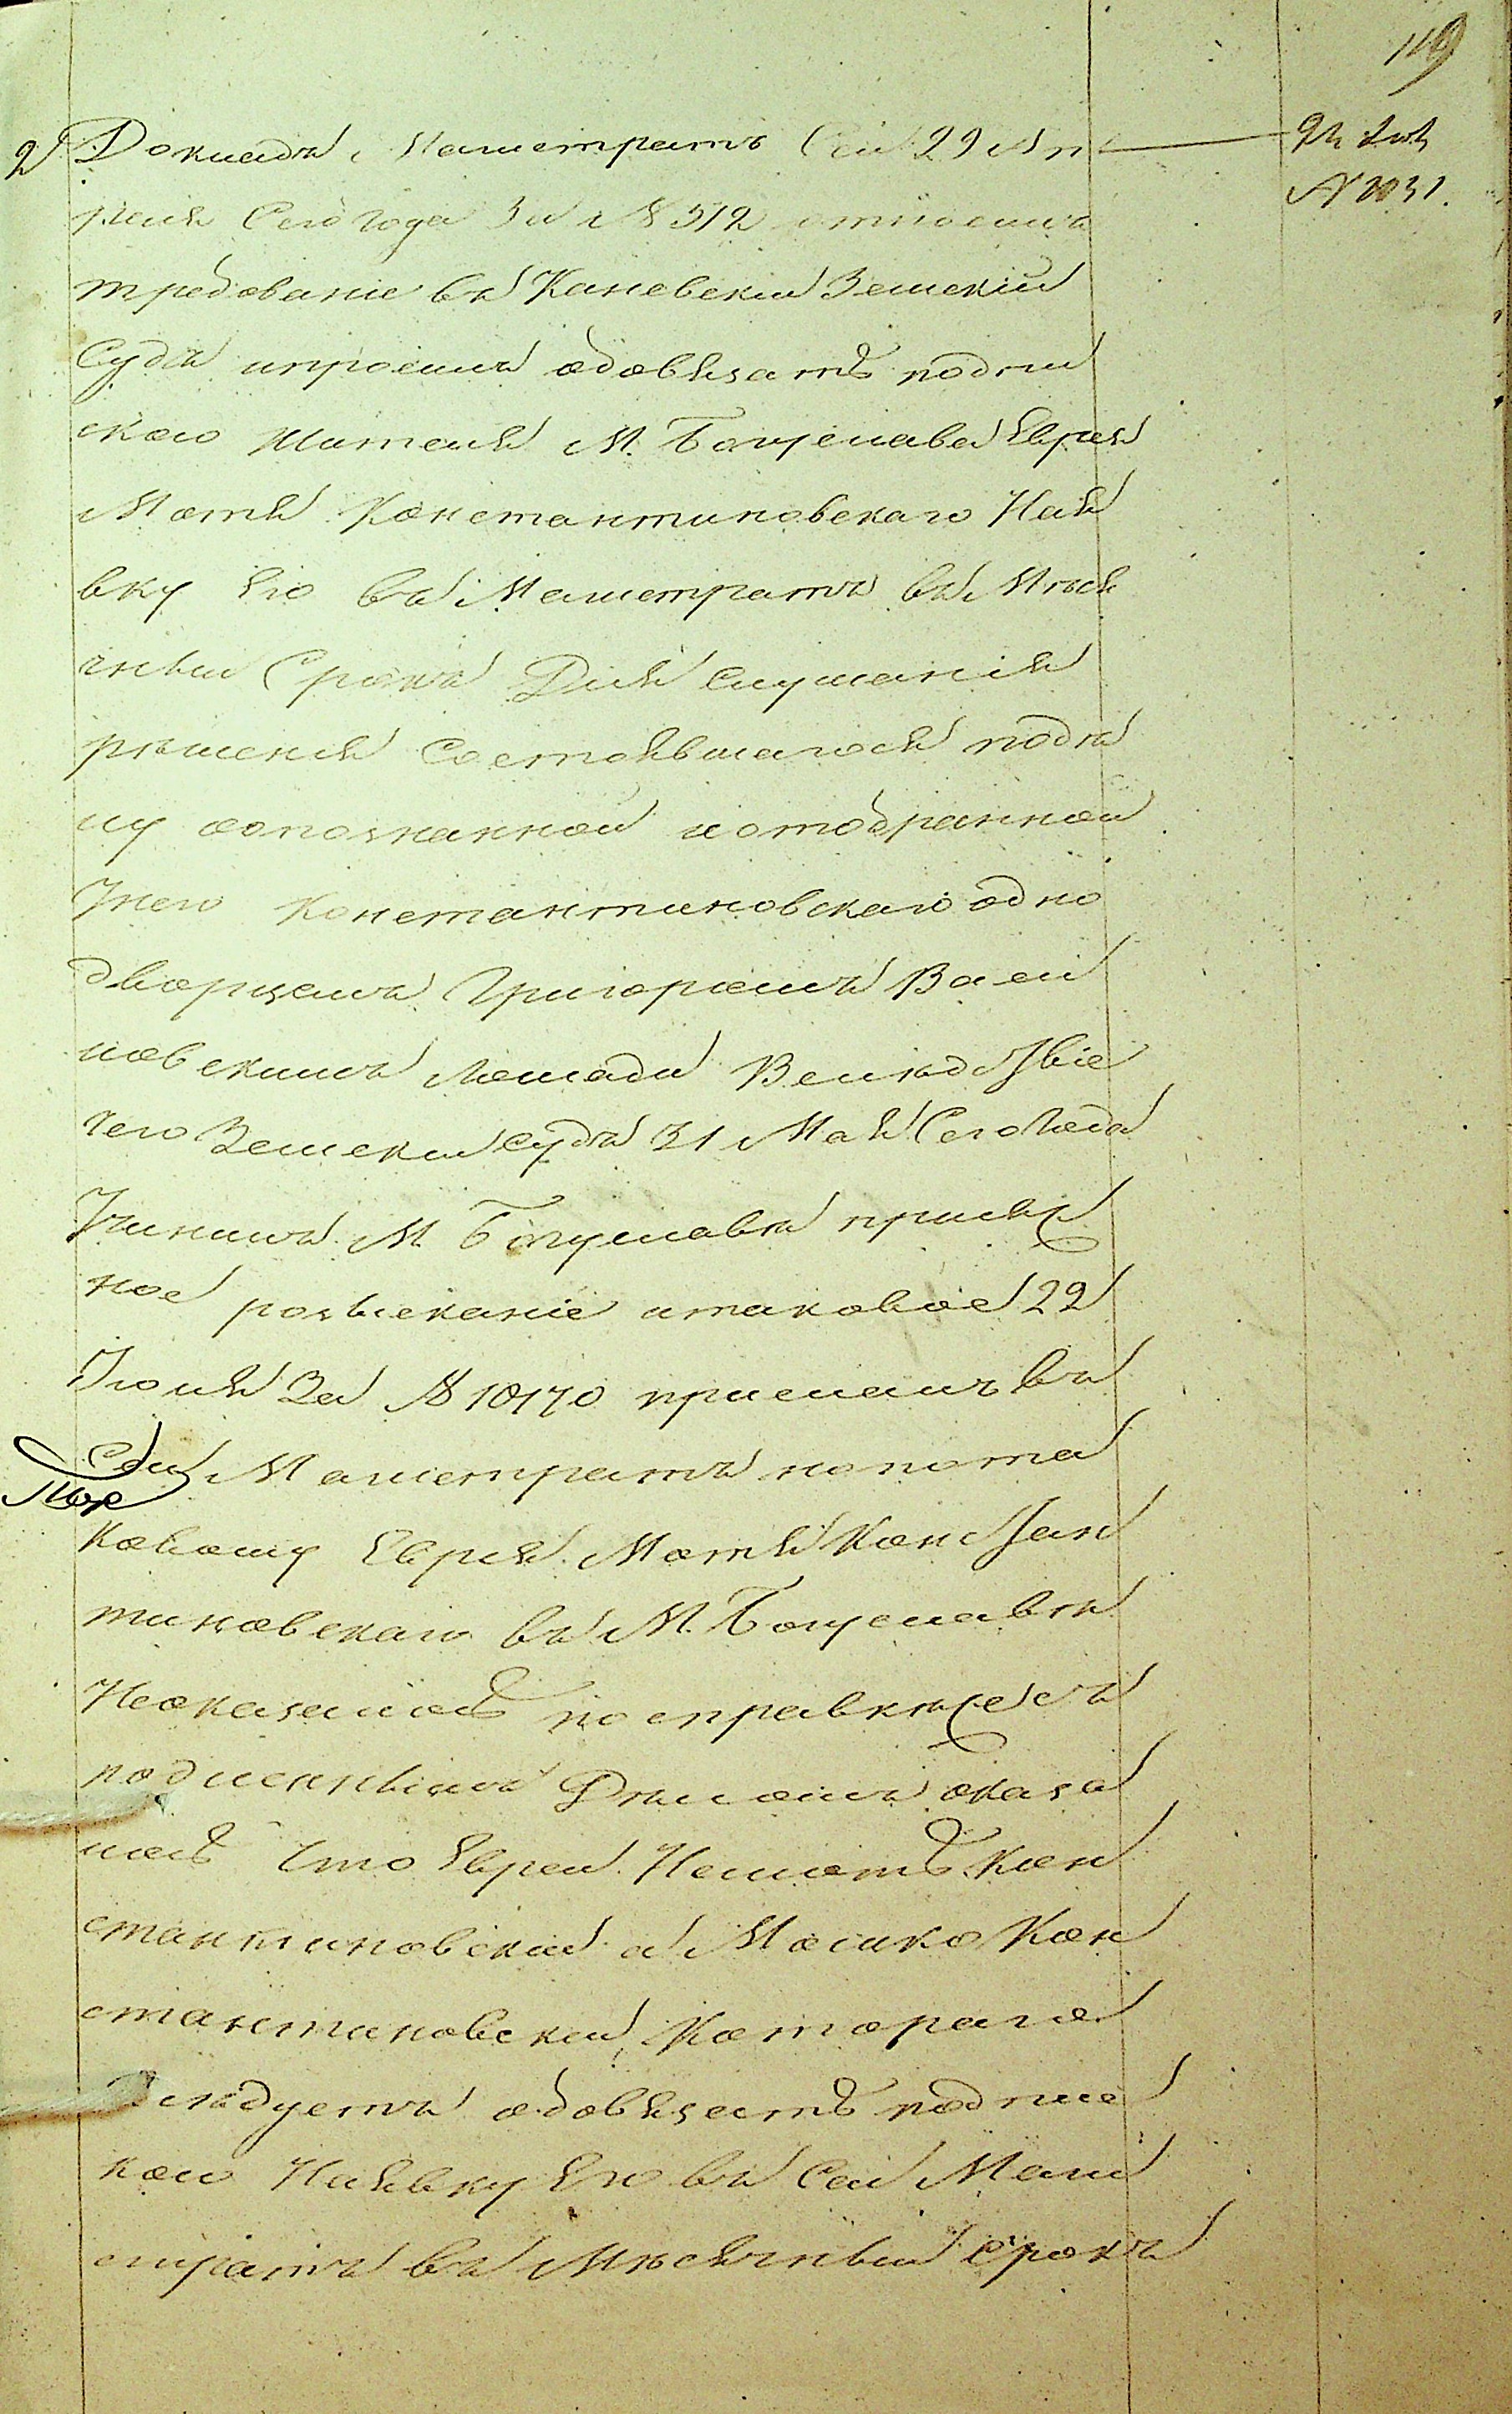 119
2 Докладъ, Магистратъ Сей 29 Ап
реля Сего года За № 512 относилъ
требованіе въ Каневскій Земскій
Судъ ипросилъ обовязать подпи
скою Жителя М. Богуслава Еврея
Мотя Константиновскаго Наяв
вку Его въ Магистратъ въ Мѣся
чный Срокъ Для Слушанія
рѣшенія Состоявшагося подѣ
лу оопознанной иотобранной
Унего Константиновскаго одно
дворцемъ Григоріемъ Васи
левскимъ Лошади Вслѣдствіе
чего Земский судъ 31 Мая Сего Года
Учинилъ М. Богуславѣ прилѣж
ное розысканіе итаковое 22
Іюля За № 10170 прислалъ въ
Сей Магистратъ нопота
ковому Еврея Мотя Констан
тиновскаго въ М. Богуславѣ
Неоказалось посправкѣже съ
подленнымъ Дѣломъ оказа
лось Что Еврей Немоть Кон
стантиновский а Мошко Кон
стантиновский, Котораго
Слѣдуетъ обовязать подпис
кою Наявку Его въ Сей Маги
стратъ въ Мѣсячный срокъ